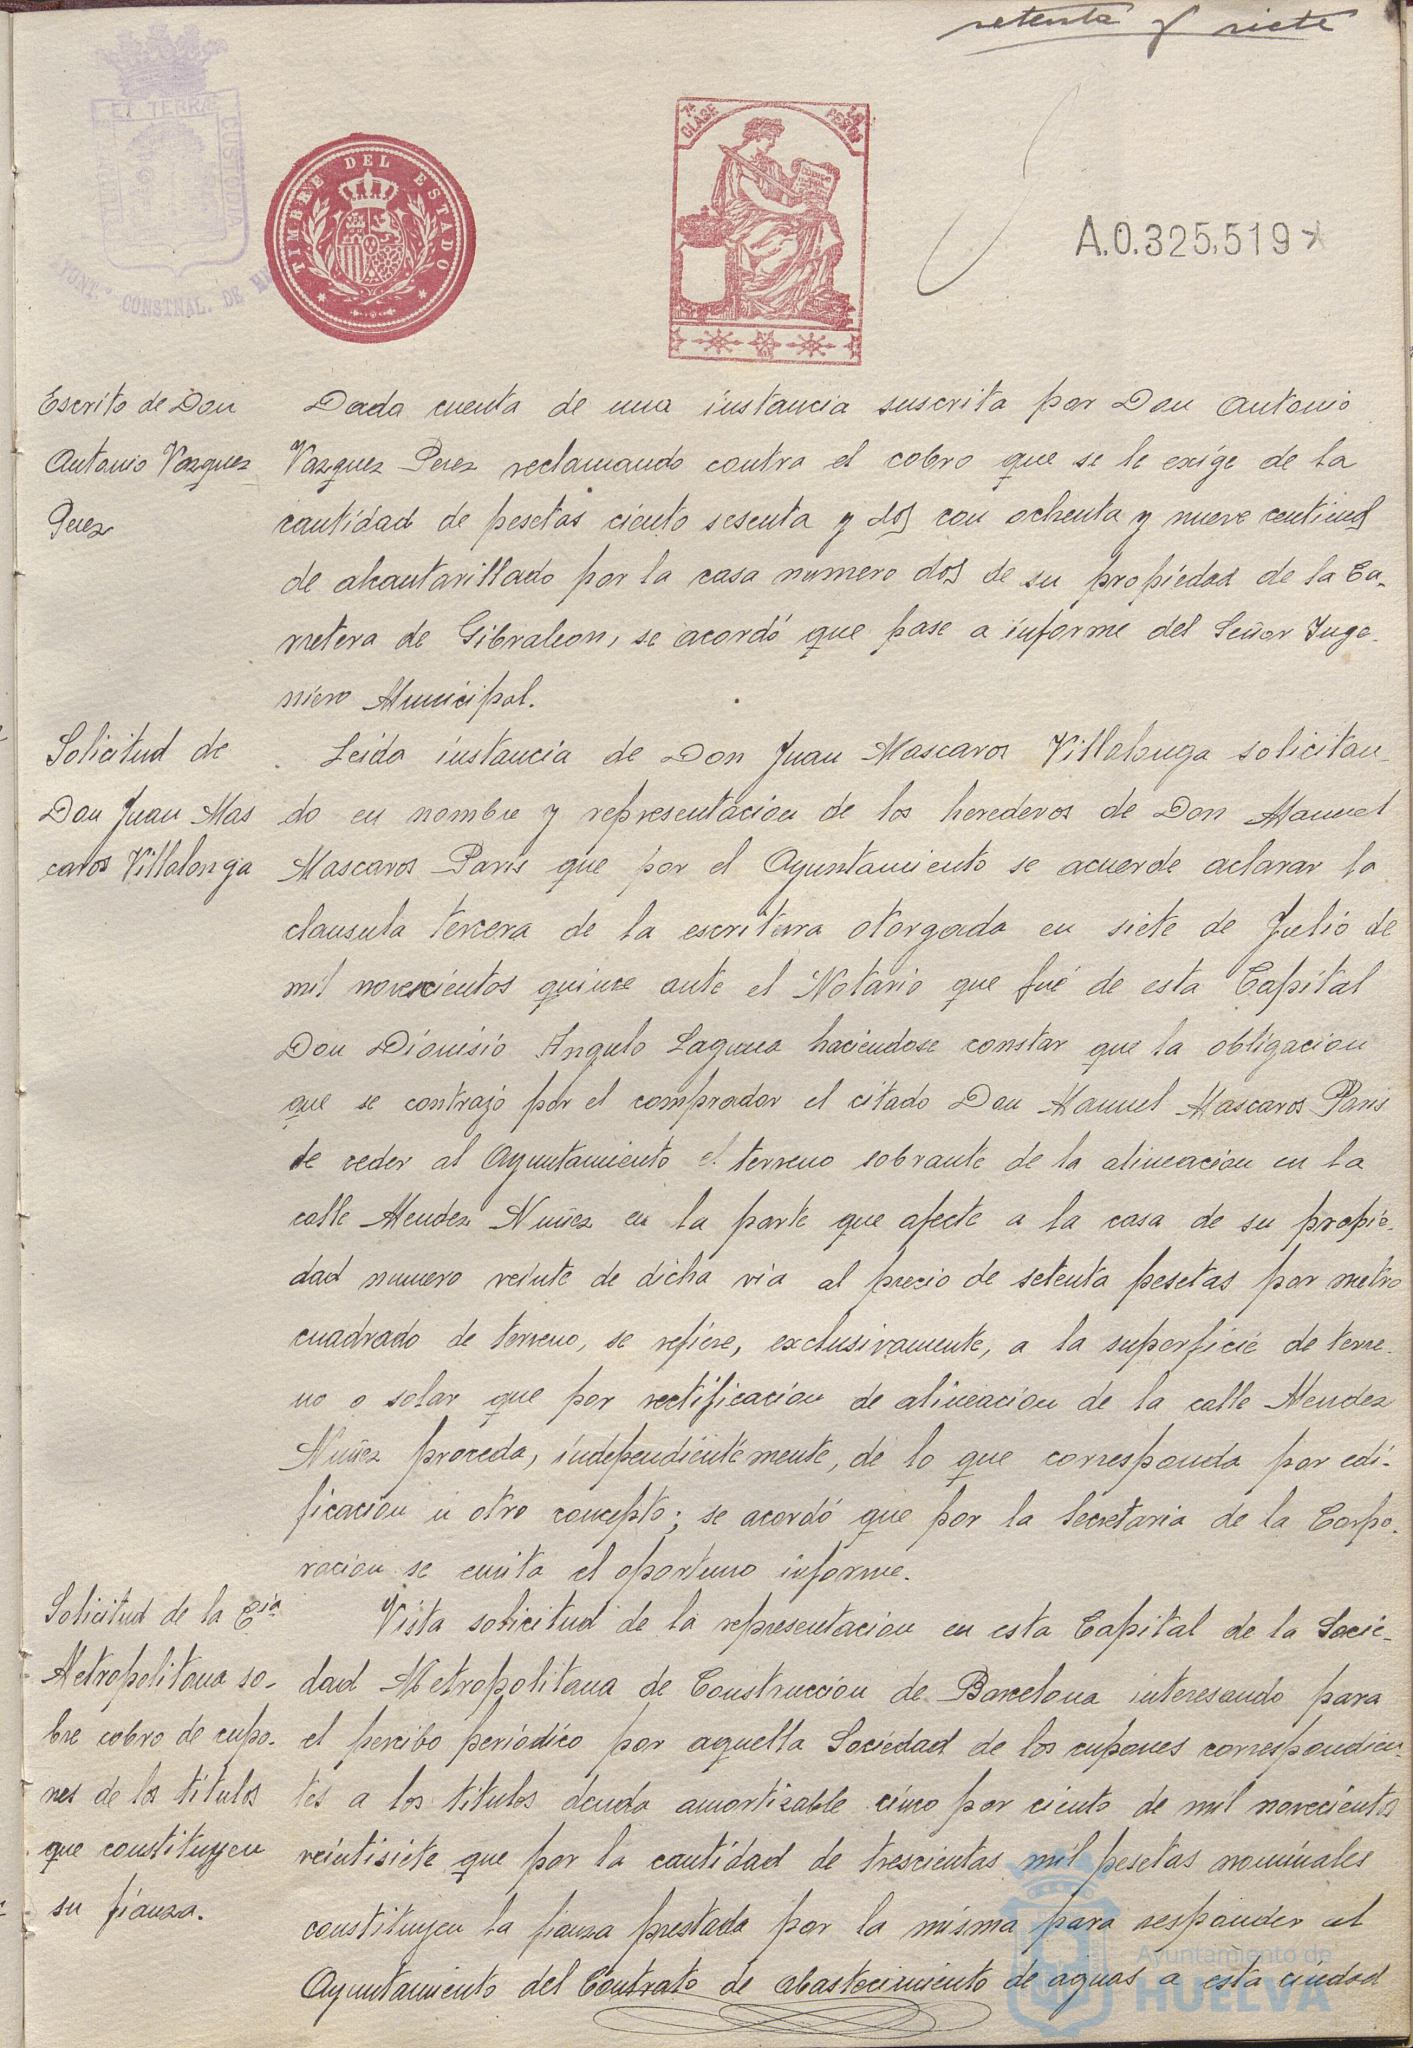 setenta y siete
ET TERRÆ
CUSTODIA
CONSTNAL. DE
TIMBRE DEL ESTADO
7ª CLASE
A.0.325,519
Escrito de Don
Antonio Vazquez
Perez
Dada cuenta de una instancia suscrita por Don Antonio
Vazquez Perez reclamando contra el cobro que se le exige de la
cantidad de pesetas ciento sesenta y dos con ochenta y nueve centimos
de alcantarillado por la casa numero dos de su propiedad de la Ca-
rretera de Gibraleon, se acordó que pase a informe del Señor Inge-
niero Municipal.
Solicitud de
Don Juan Mas
caros Villalonga
Leida instancia de Don Juan Mascaros Villalonga solicitan-
do en nombre y representacion de los herederos de Don Manuel
Mascaros Paris que por el Ayuntamiento se acuerde aclarar la
clausula tercera de la escritura otorgada en siete de Julio de
mil novecientos quince ante el Notario que fué de esta Capital
Don Dionisio Angulo Laguna haciendose constar que la obligacion
que se contrajó por el comprador el citado Don Manuel Mascaros Paris
de ceder al Ayuntamiento el terreno sobrante de la alineacion en la
calle Mendez Nuñez en la parte que afecte a la casa de su propie-
dad numero veinte de dicha via al precio de setenta pesetas por metro
cuadrado de terreno, se refiere, exclusivamente, a la superficie de terre-
no o solar que por rectificacion de alineacion de la calle Mendez
Nuñez proceda, independientemente, de lo que corresponda por edi-
ficacion u otro concepto; se acordó que por la Secretaria de la Corpo-
racion se emita el oportuno informe.
Solicitud de la Cia
Metropolitana so-
bre cobro de cupo-
nes de los titulos
que constituyen
su fianza.
Vista solicitud de la representacion en esta Capital de la Socie-
dad Metropolitana de Construccion de Barcelona interesando para
el percibo periódico por aquella Sociedad de los cupones correspondien-
tes a los titulos deuda amortizable cinco por ciento de mil novecientos
veintisiete que por la cantidad de trescientas mil pesetas nominales
constituyen la fianza prestada por la misma para responder al
Ayuntamiento del Contrato de abastecimiento de aguas a esta ciudad
Ayuntamiento de
HUELVA